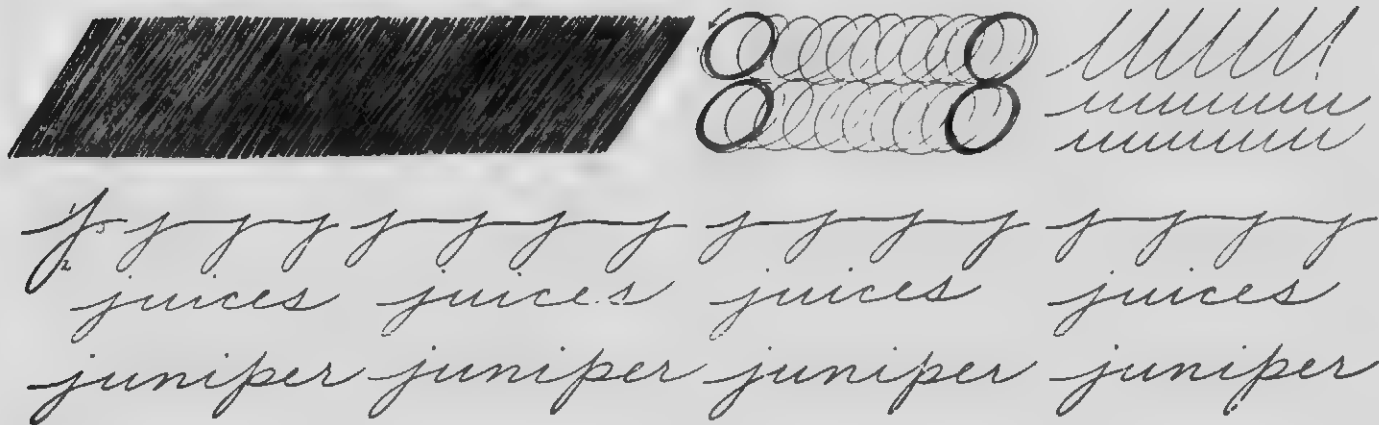 j j j j j j j j j j j j j j j j
juices juices juices juices
juniper juniper juniper juniper